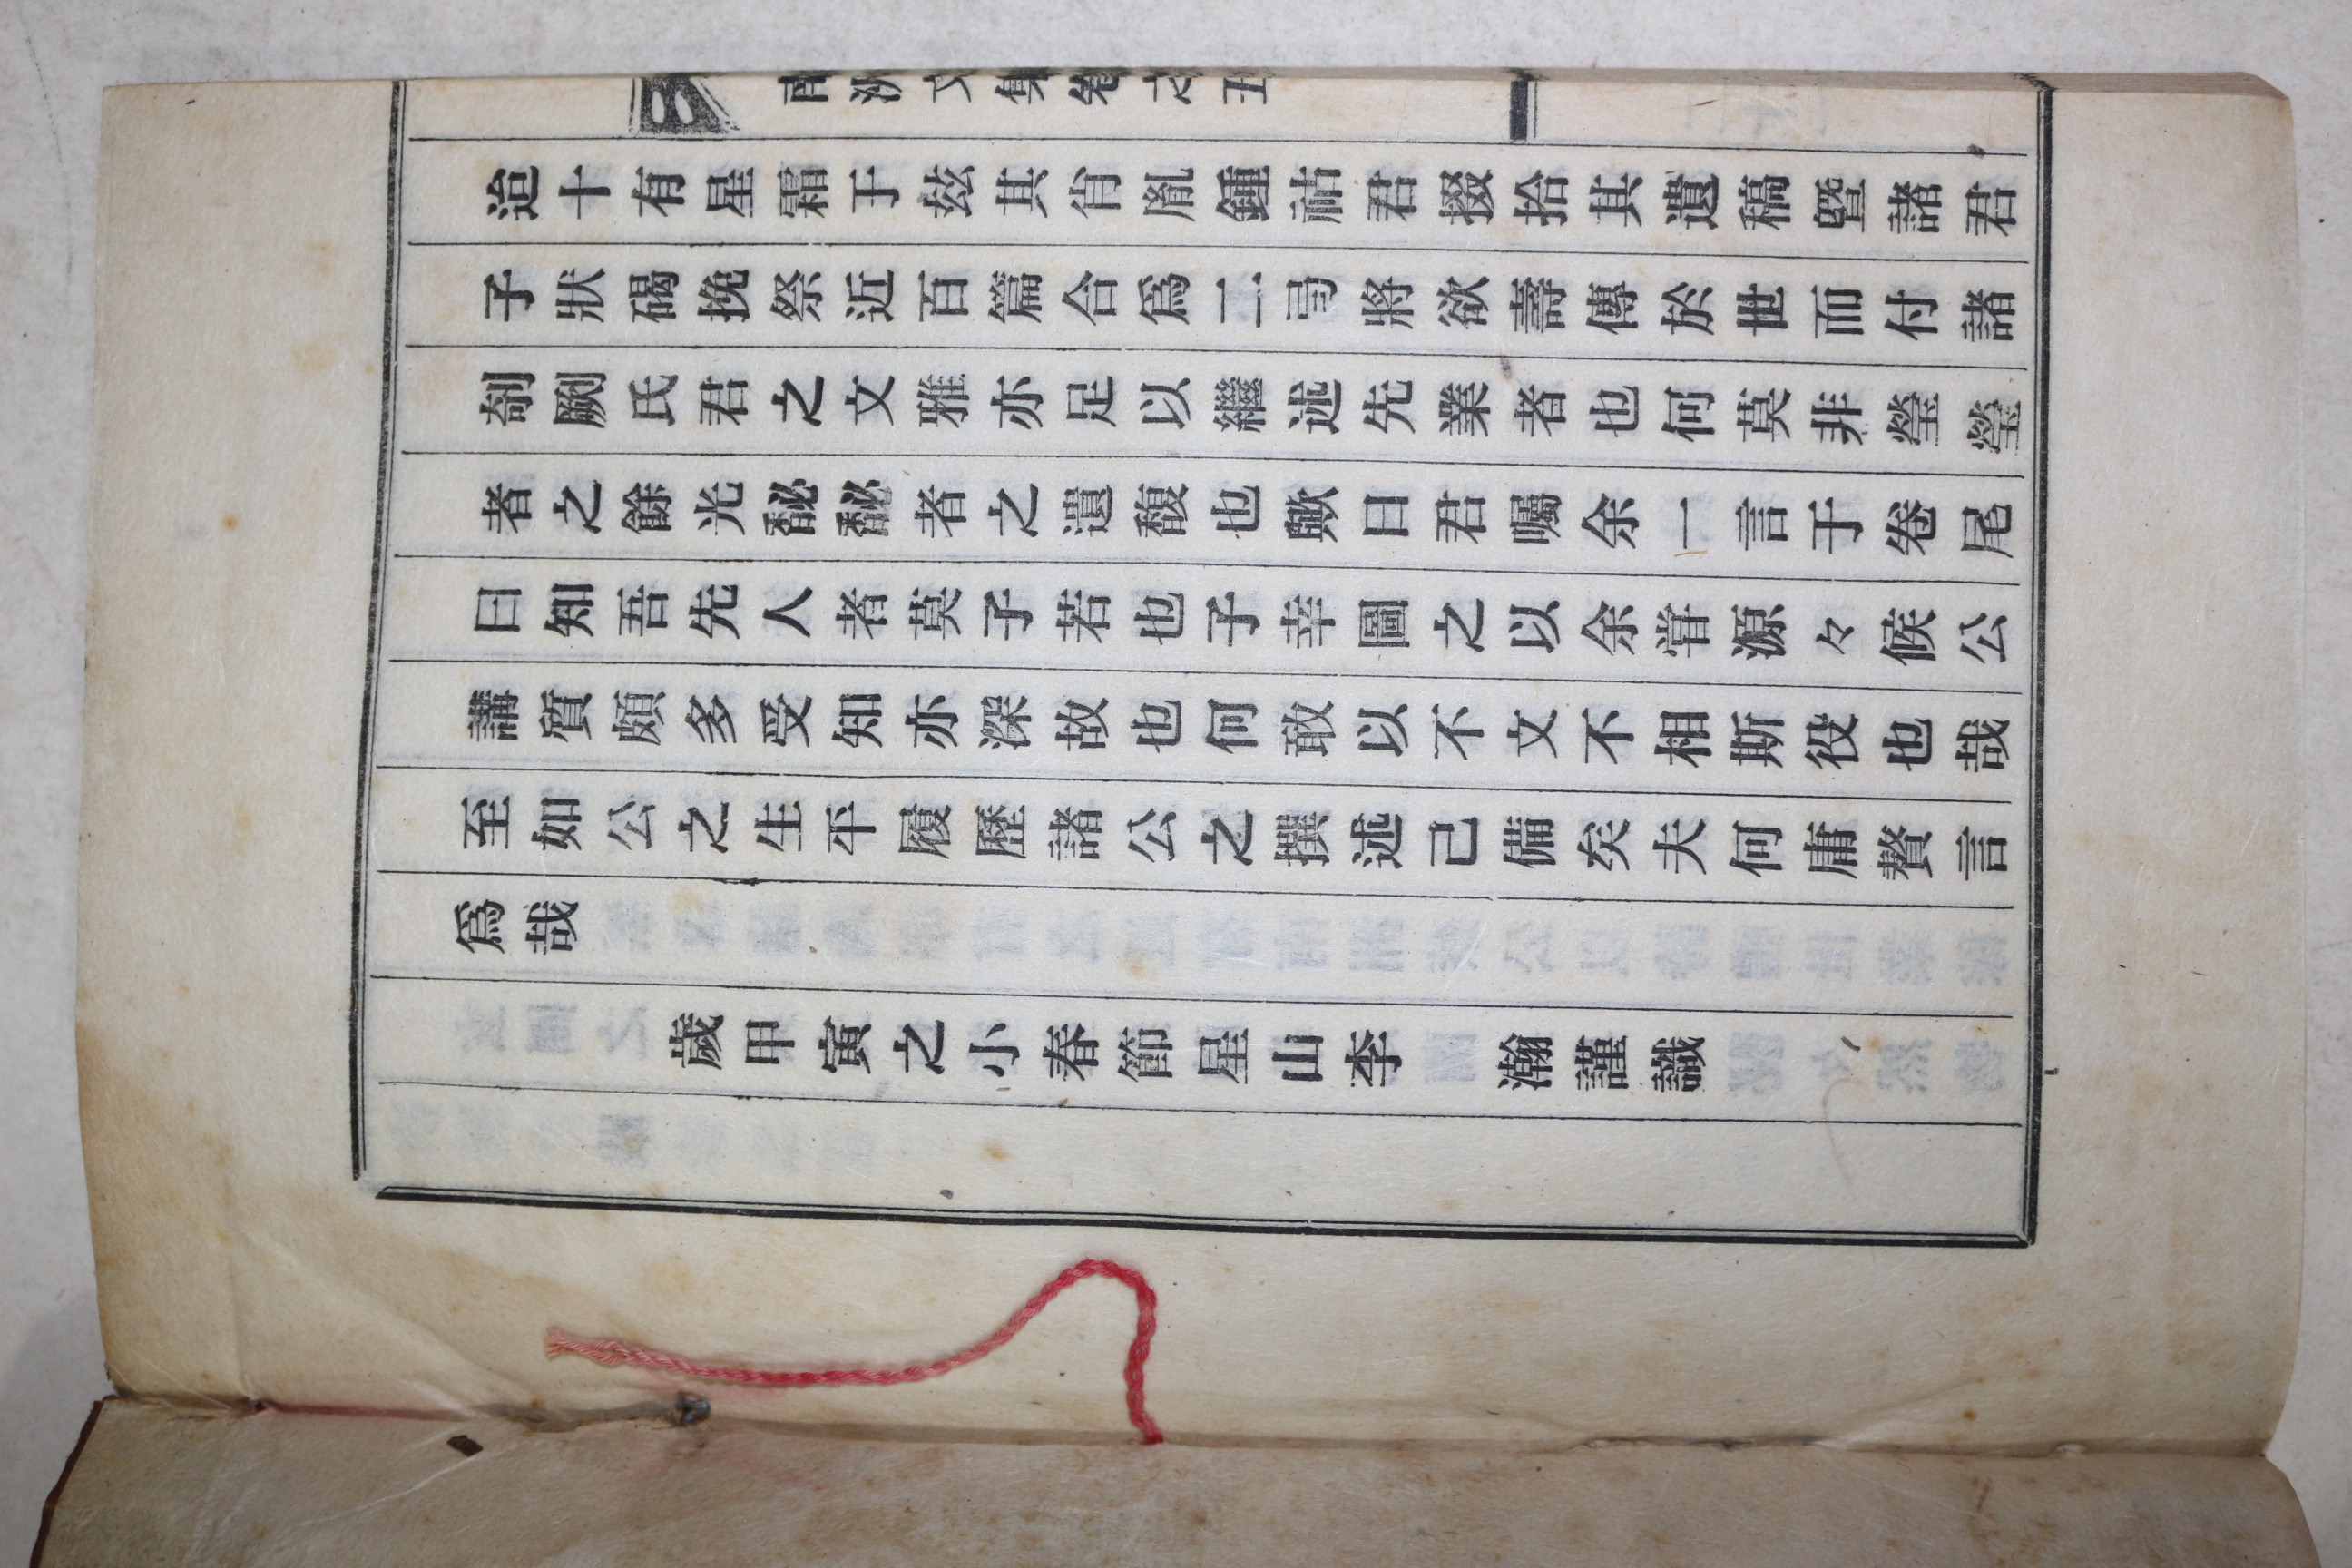 南洲文集卷之五
迨十有星霜于玆其肖胤鍾祜君掇拾其遺稿曁諸君
子狀碣挽祭近百篇合爲二弓將欲壽傳於世而付諸
剞劂氏君之文雅亦足以繼述先業者也何莫非瑩瑩
者之餘光馝馝者之遺馥也歟曰君囑余一言于卷尾
曰知吾先人者莫子若也子幸圖之以余甞源々候公
講質頗多受知亦深故也何敢以不文不相斯役也哉
至如公之生平履歷諸公之撰述己備矣夫何庸贅言
爲哉
歲甲寅之小春節星山李瀚謹識